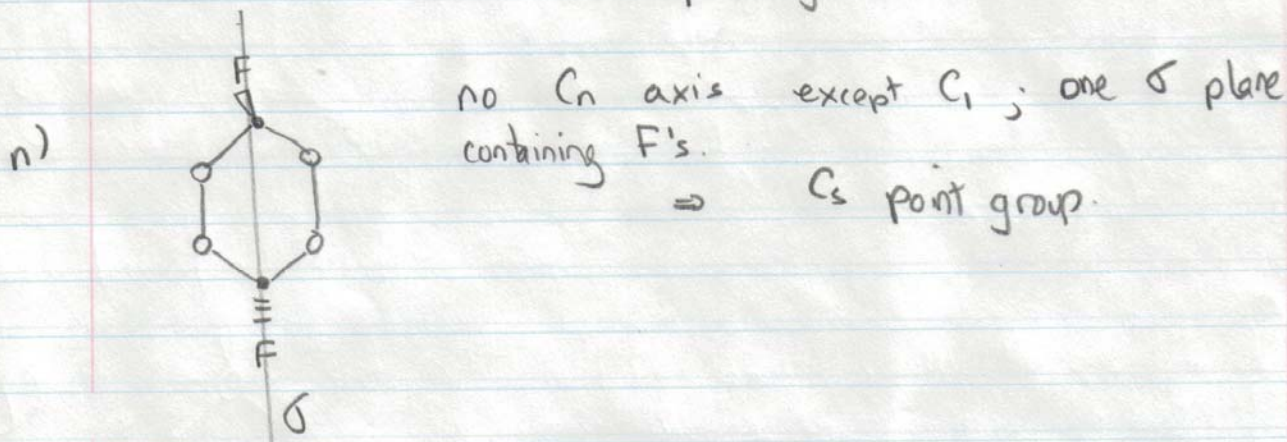 F
no Cn axis except C1 ; one σ plane
n)
containing F's.
⇒ Cs point group.
F
σ